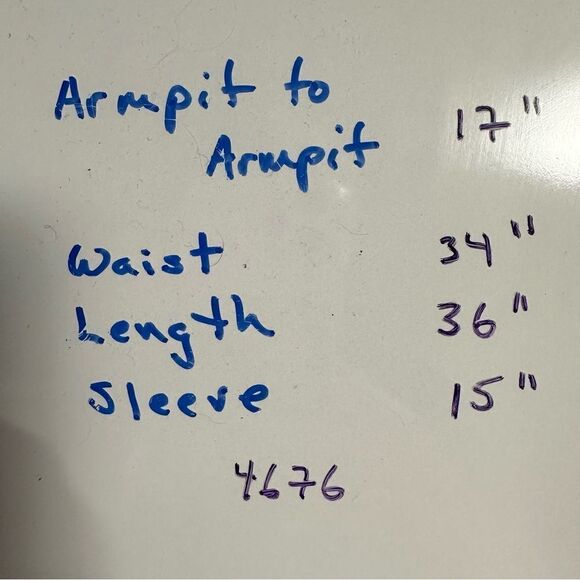 Armpit to
Armpit 17"
Waist 34"
Length 36"
Sleeve 15"
4676